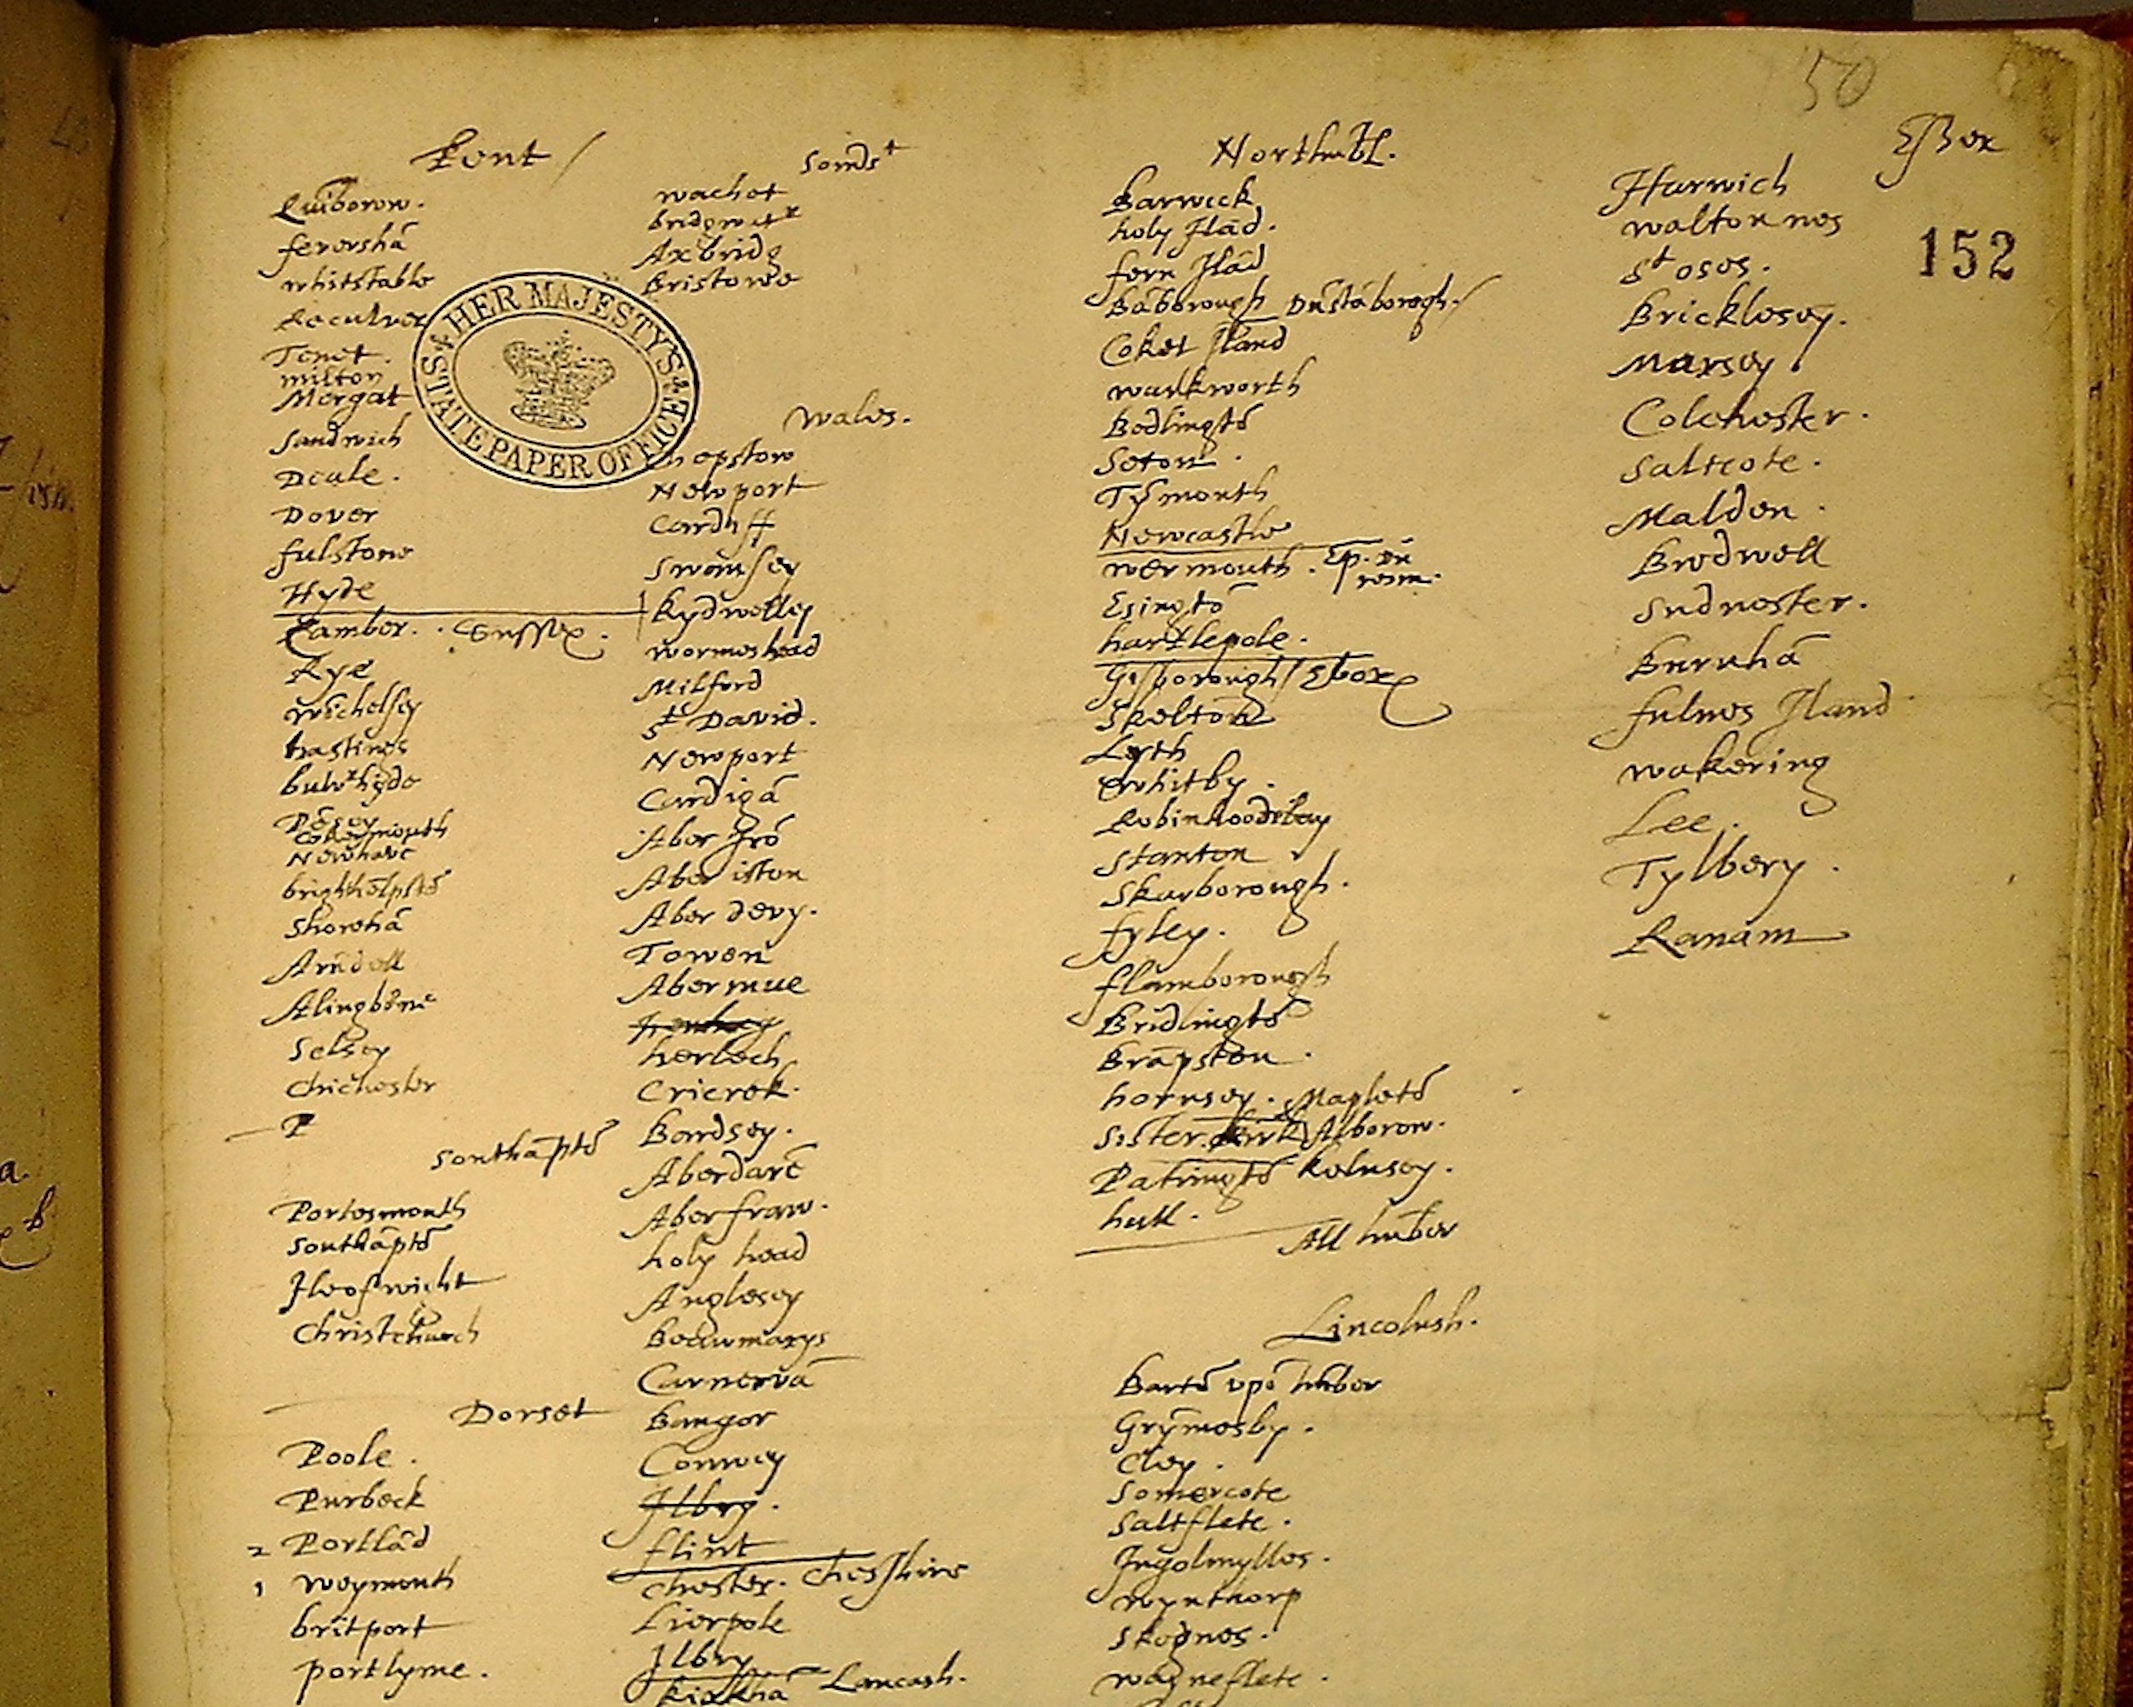 50
152
Kent
Quiborow.
feversha͂
whitstable
Reculver
Tenet.
milton
Mergat
Sandwich
Deale.
Dover
fulstone
Hyde
Camber. Sussex.
Rye
Wi͂chelsey
hastings
Cokeymouth
Newhave͂
brighthelpsto͂
Shoreha͂
Aru͂dell
Selsey
Chichester
P
Southa͂pto͂
Portesmouth
Southa͂pto͂
Ileofwicht
Christchurch
Dorset
Poole.
Purbeck
2 Portla͂d
1 Weymouth
britport
portlyme.
Somds^t
wachet
bridgwat^r
Axbridg
Bristowe
HER MAJESTY'S STATE PAPER OFFICE
Wales.
Chepstow
Newport
Cardiff
Swomsey
Kydwelley
Wormeshead
Milford
S^t David.
Newport
Cardiga͂
Aber iston
Aber devy.
Towen
Abermue
herlech
Cricrek.
Bardsey.
Aberdare͂
Aberfraw.
holy head
Anglesey
Beawmarys
Carnerva͂
Bangor
Conwey
Ilbry.
flint
Chester. Chesshire
Lierpole
Ilbry
Kirkha͂ Lancash.
Northu͂bl.
Barwick
holy Ila͂d.
fern Ila͂d
Ba͂borough Du͂sta͂borogh.
Coket Iland
warkworth
Bedlingto͂
Seton.
Ty͂mouth
Newcastle
wermouth. Ep. Du͂
Esingto͂
hartlepole.
Gisborough / Ebor
Skelton
Lyth
Whitby.
Robinhoodsbay
Stanton
Skarborough.
fyley.
flamborough
Bridlingto͂
Bra͂pston.
hornsey. Mapleto͂
Sister kirk Alborow.
Patringto͂ Kelnsey.
hull.
All hu͂ber
Lincolnsh.
Barto͂ vpo͂ hu͂ber
Gry͂mesby.
Cley.
Somercote
Saltflete.
Ingolmylles.
wynthorp
Skegnes.
wayneflete.
Essex
Harwich
walton nes
S^t Oses.
Bricklesey.
Marsey
Colchester.
Saltcote.
Malden.
Bredwell
Sudnester.
Burnha͂
fulnes Iland
wakering
Lee.
Tylbery.
Ranam